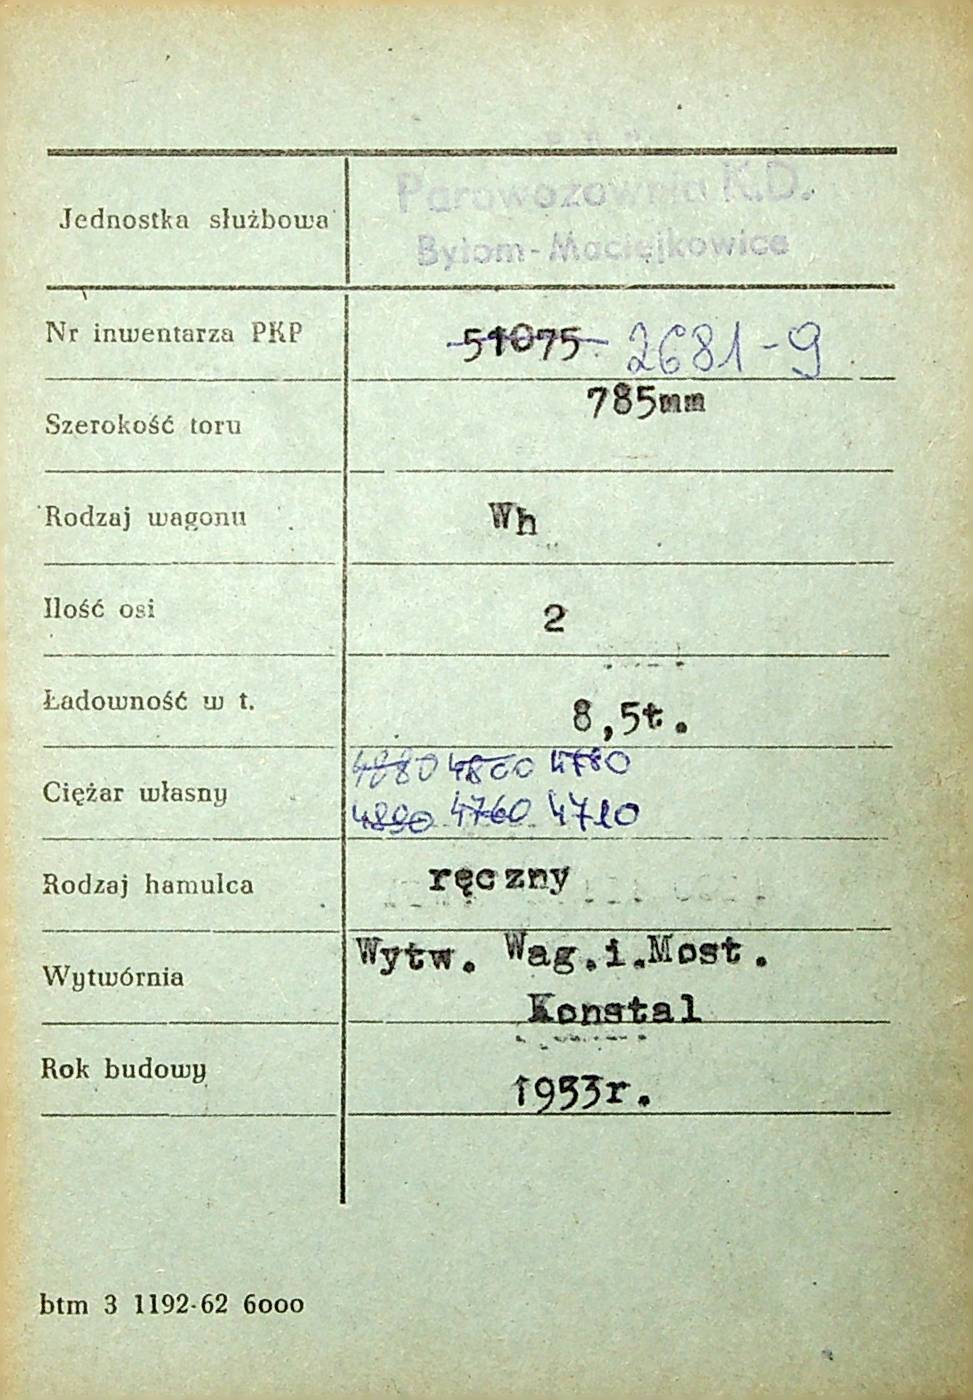 Jednostka służbowa
Parowozownia K.D.
Bytom-Maciejkowice
Nr inwentarza PKP 51075 2681-9
Szerokość toru 785mm
Rodzaj wagonu Wh
Ilość osi 2
Ładowność w t. 8,5t.
Ciężar własny 4880 4800 4780
4890 4760 4710
Rodzaj hamulca ręczny
Wytwórnia Wytw. Wag.i.Most.
Konstal
Rok budowy 1953r.
btm 3 1192-62 6000